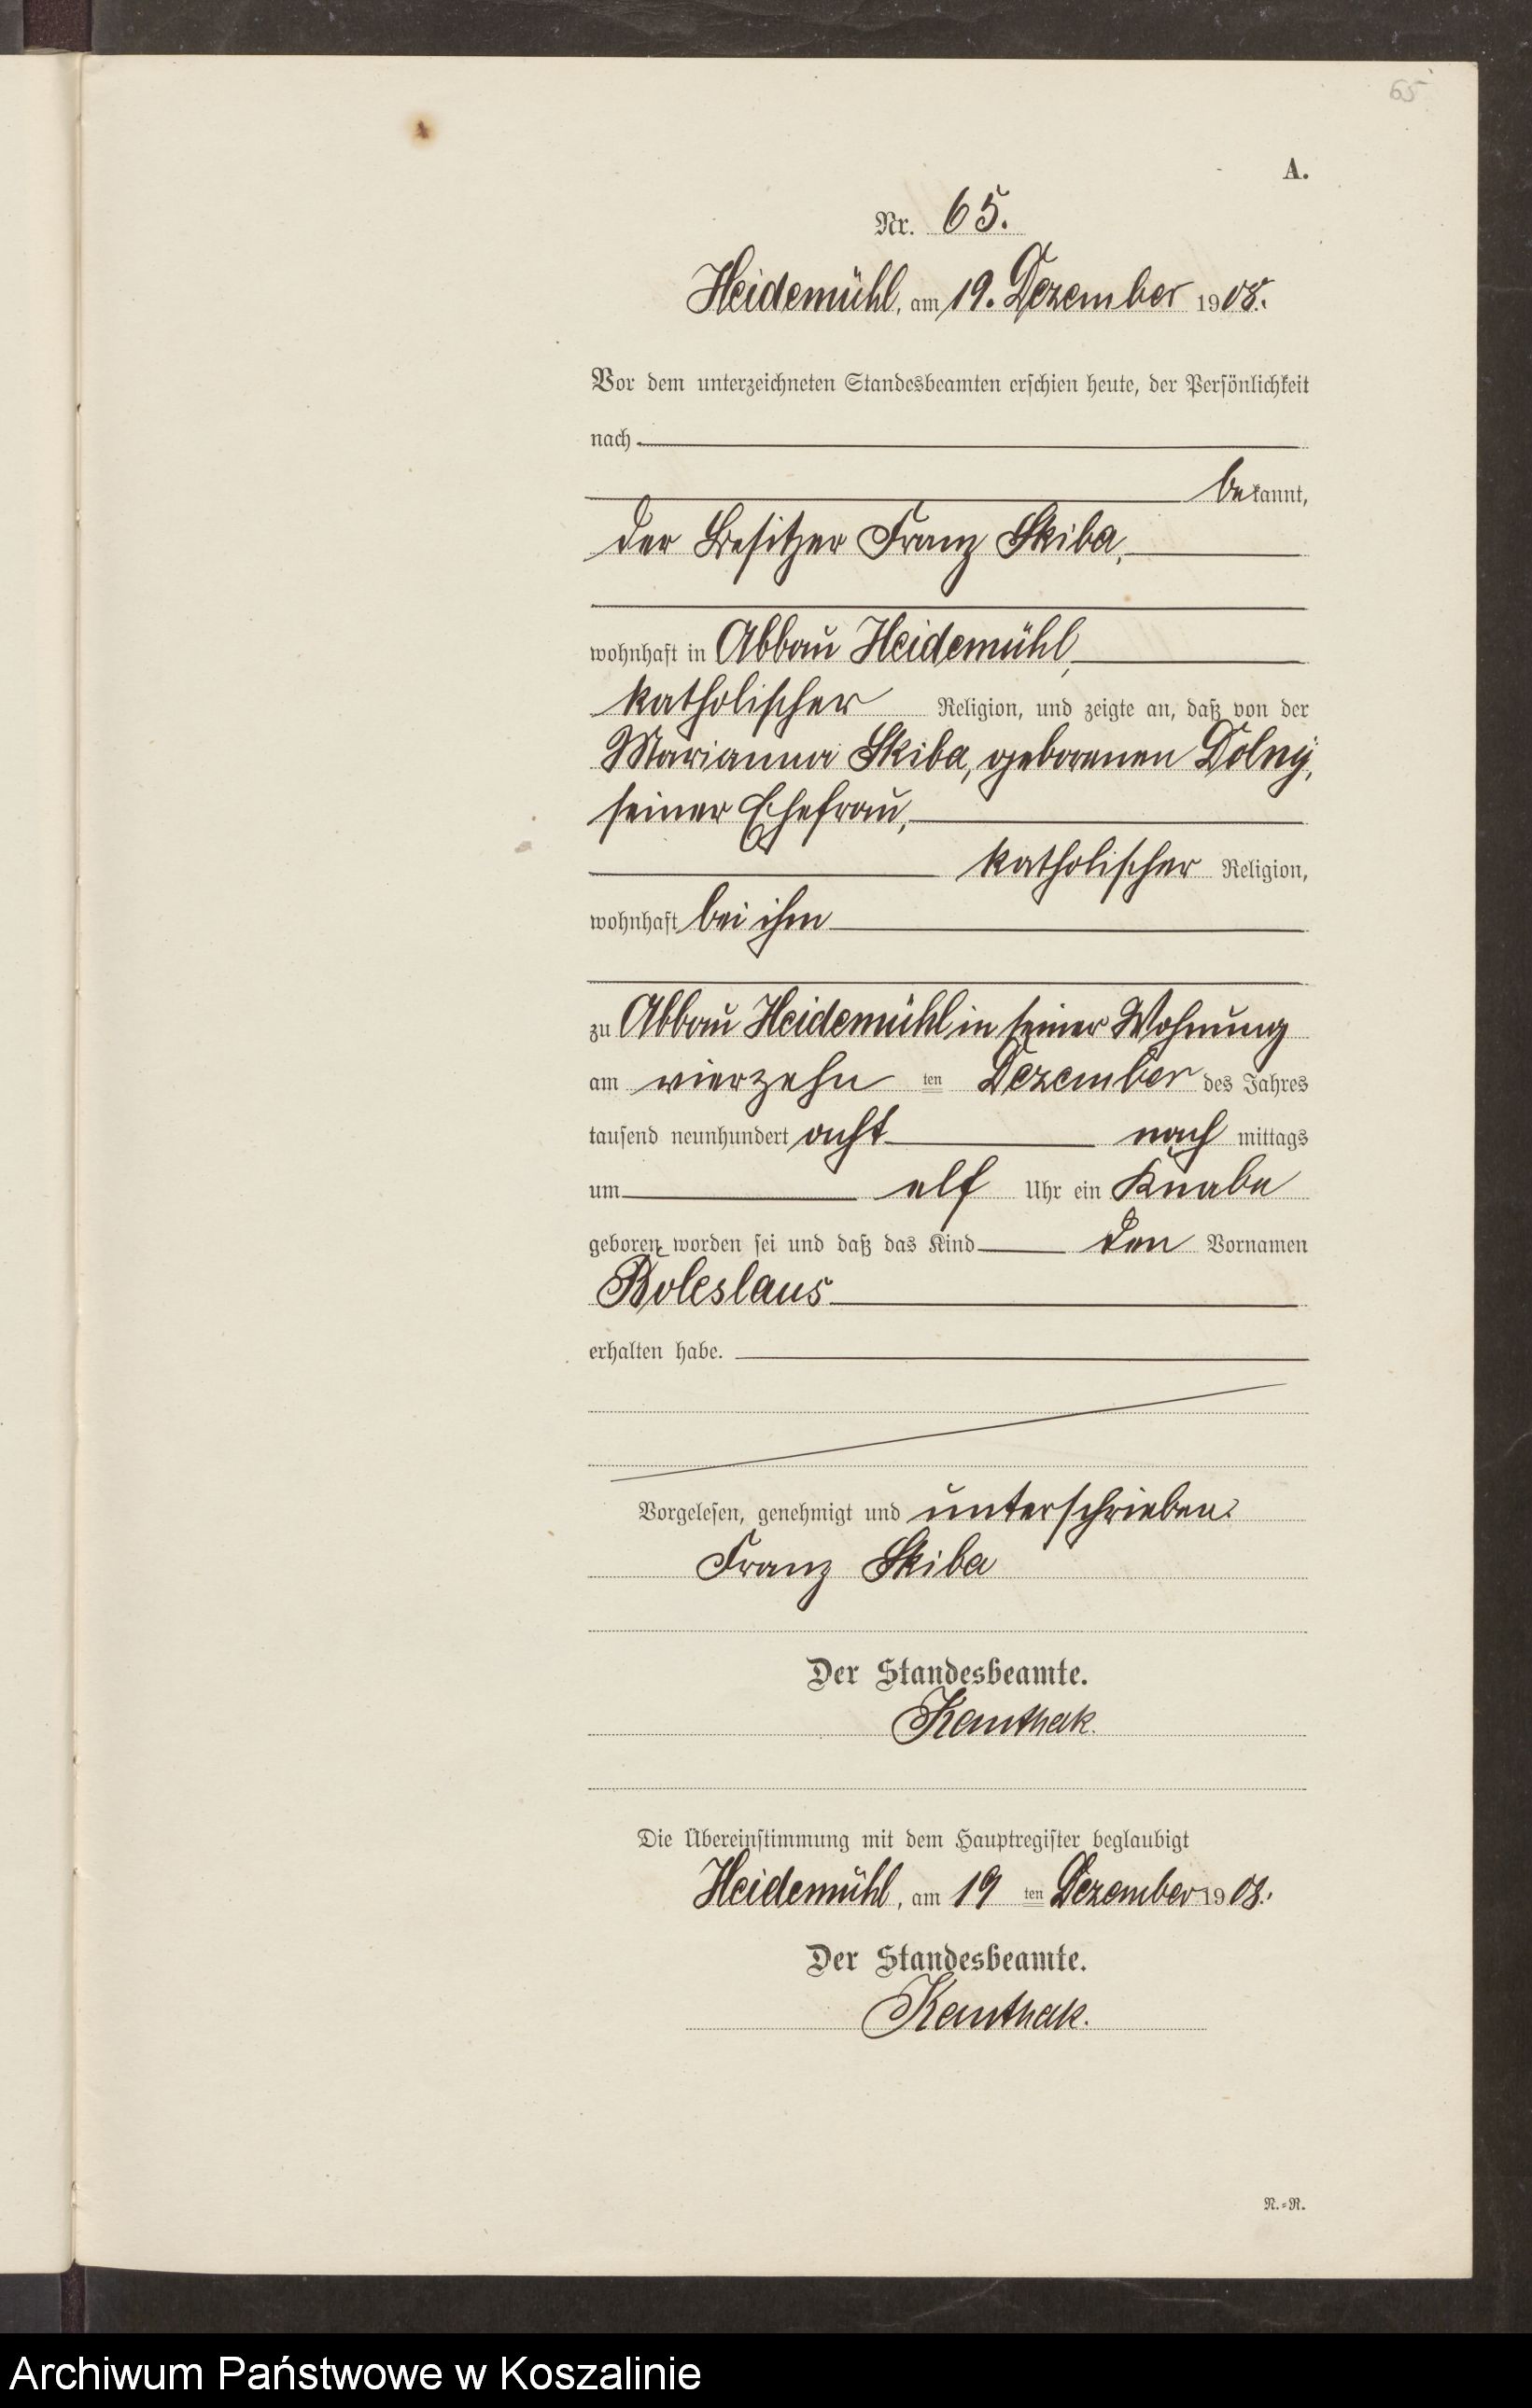 65
A.
Nr. 65.
Heidemühl, am 19. Dezember 1908.
Vor dem unterzeichneten Standesbeamten erschien heute, der Persönlichkeit
nach
bekannt,
der Besitzer Franz Skiba,
wohnhaft in Abbau Heidemühl,
katholischer Religion, und zeigte an, daß von der
Marianna Skiba, geborenen Dolny,
seiner Ehefrau,
katholischer Religion,
wohnhaft bei ihm
zu Abbau Heidemühl in seiner Wohnung
am vierzehn ten Dezember des Jahres
tausend neunhundert acht nach mittags
um elf Uhr ein Knabe
geboren worden sei und daß das Kind den Vornamen
Boleslaus
erhalten habe.
Vorgelesen, genehmigt und unterschrieben:
Franz Skiba
Der Standesbeamte.
Kanthak.
Die Übereinstimmung mit dem Hauptregister beglaubigt
Heidemühl, am 19 ten Dezember 1908.
Der Standesbeamte.
Kanthak.
N.=R.
Archiwum Państwowe w Koszalinie